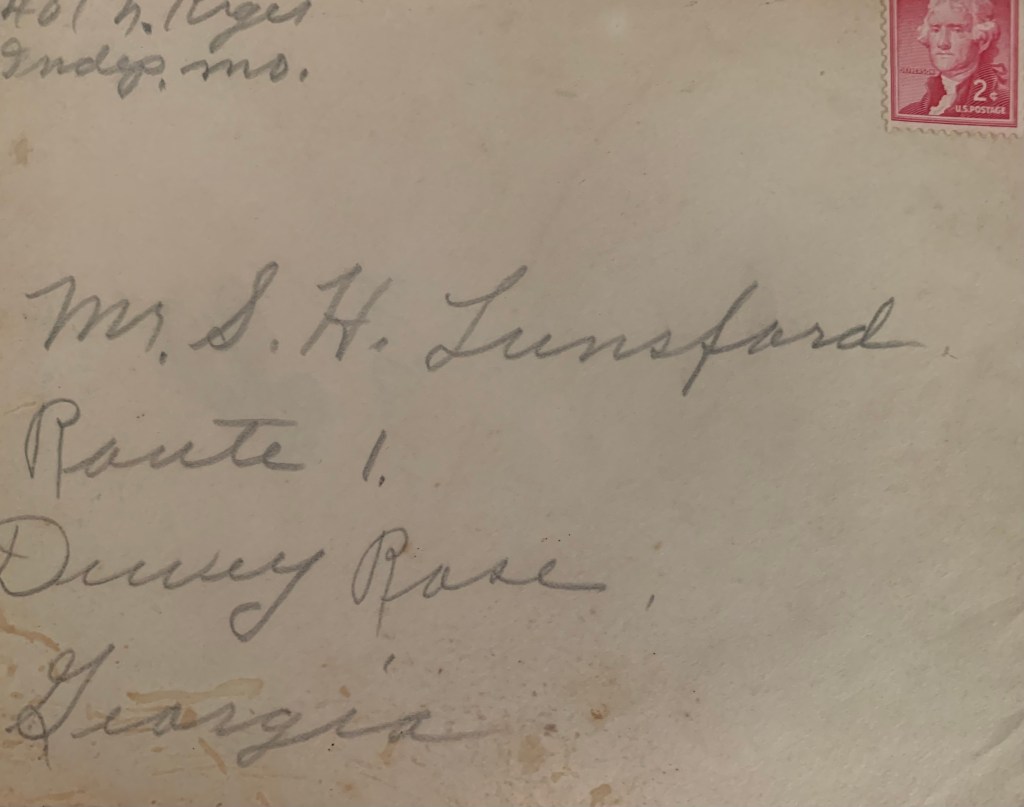 401 N. 
Indep. Mo.
JEFFERSON
2¢
U.S. POSTAGE
Mr. S. H. Lunsford
Route 1.
Dewey Rose,
Georgia